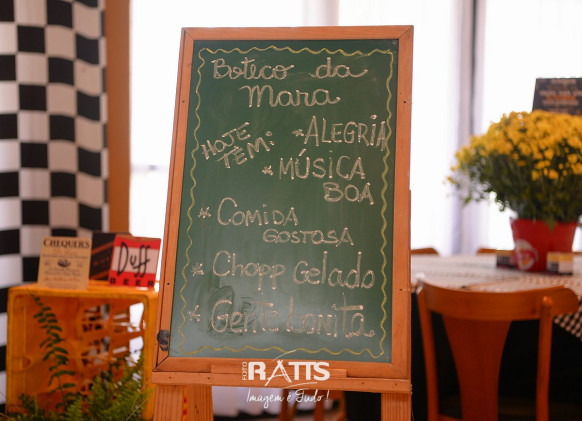 Boteco da
Mara
HOJE
TEM:
* ALEGRIA
* MÚSICA
BOA
* COMIDA
GOSTOSA
* Chopp Gelado
* Gente bonita
CHEQUER'S
Duff
BEER
FOTO RATTS
Imagem é Tudo!